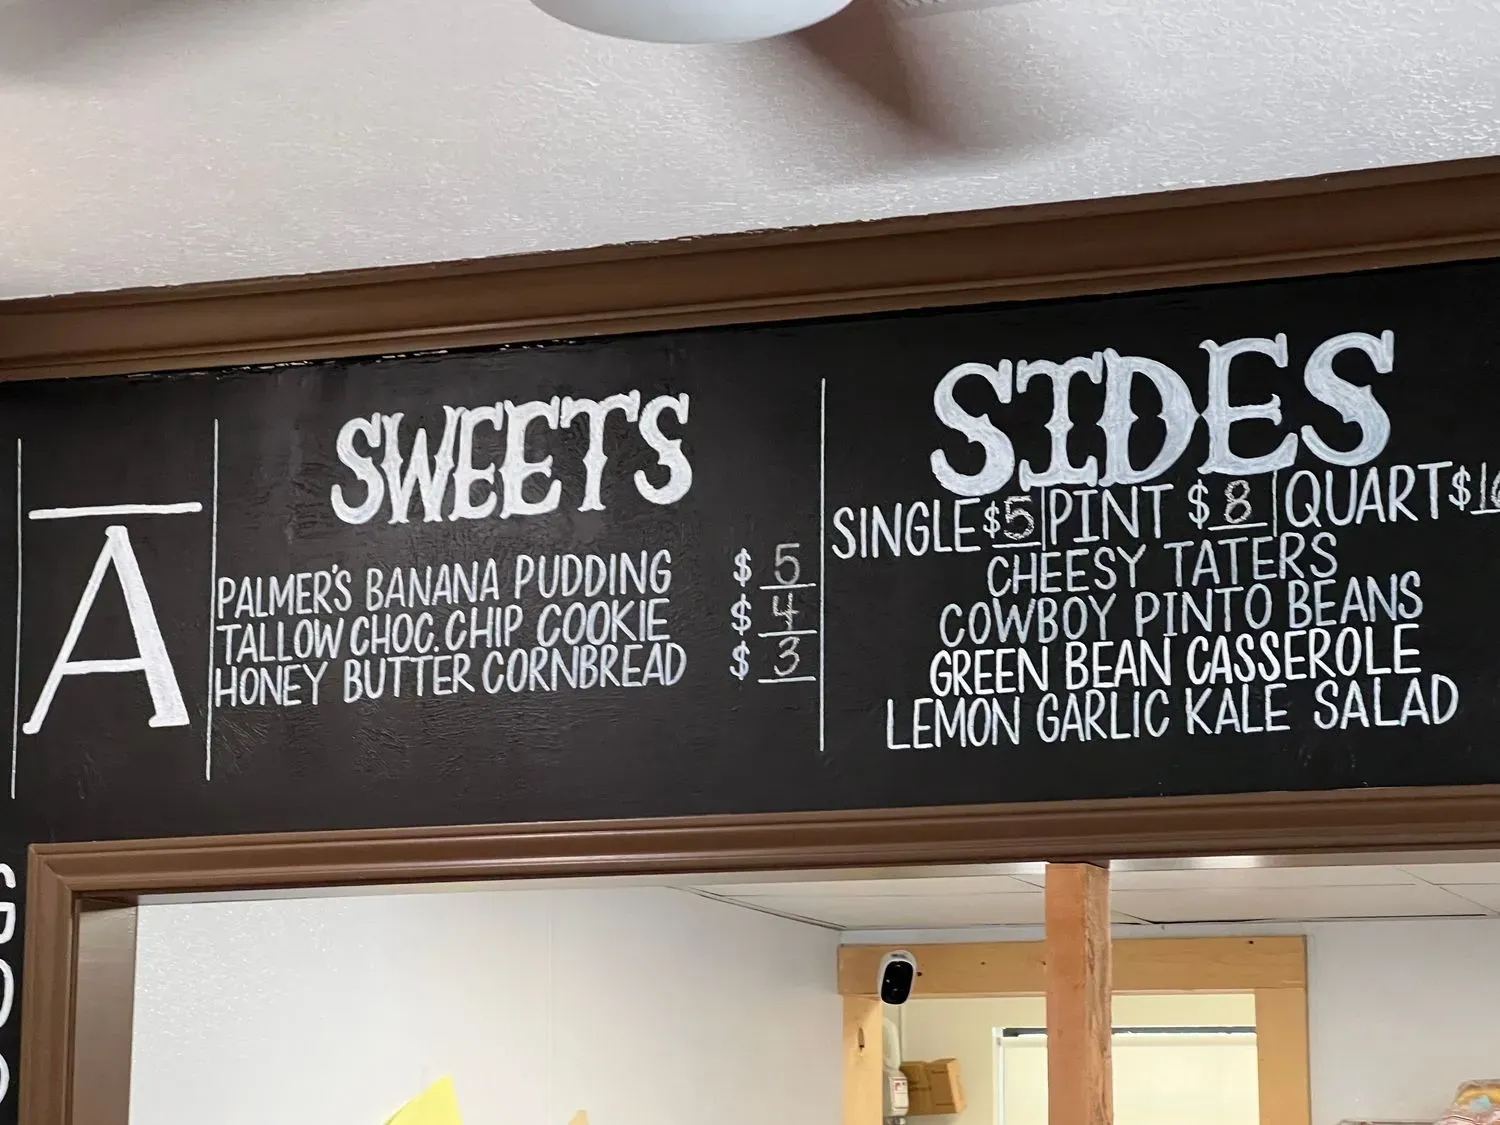 A
SWEETS
PALMER'S BANANA PUDDING $ 5
TALLOW CHOC. CHIP COOKIE $ 4
HONEY BUTTER CORNBREAD $ 3
SIDES
SINGLE $5 PINT $ 8 QUART $
CHEESY TATERS
COWBOY PINTO BEANS
GREEN BEAN CASSEROLE
LEMON GARLIC KALE SALAD